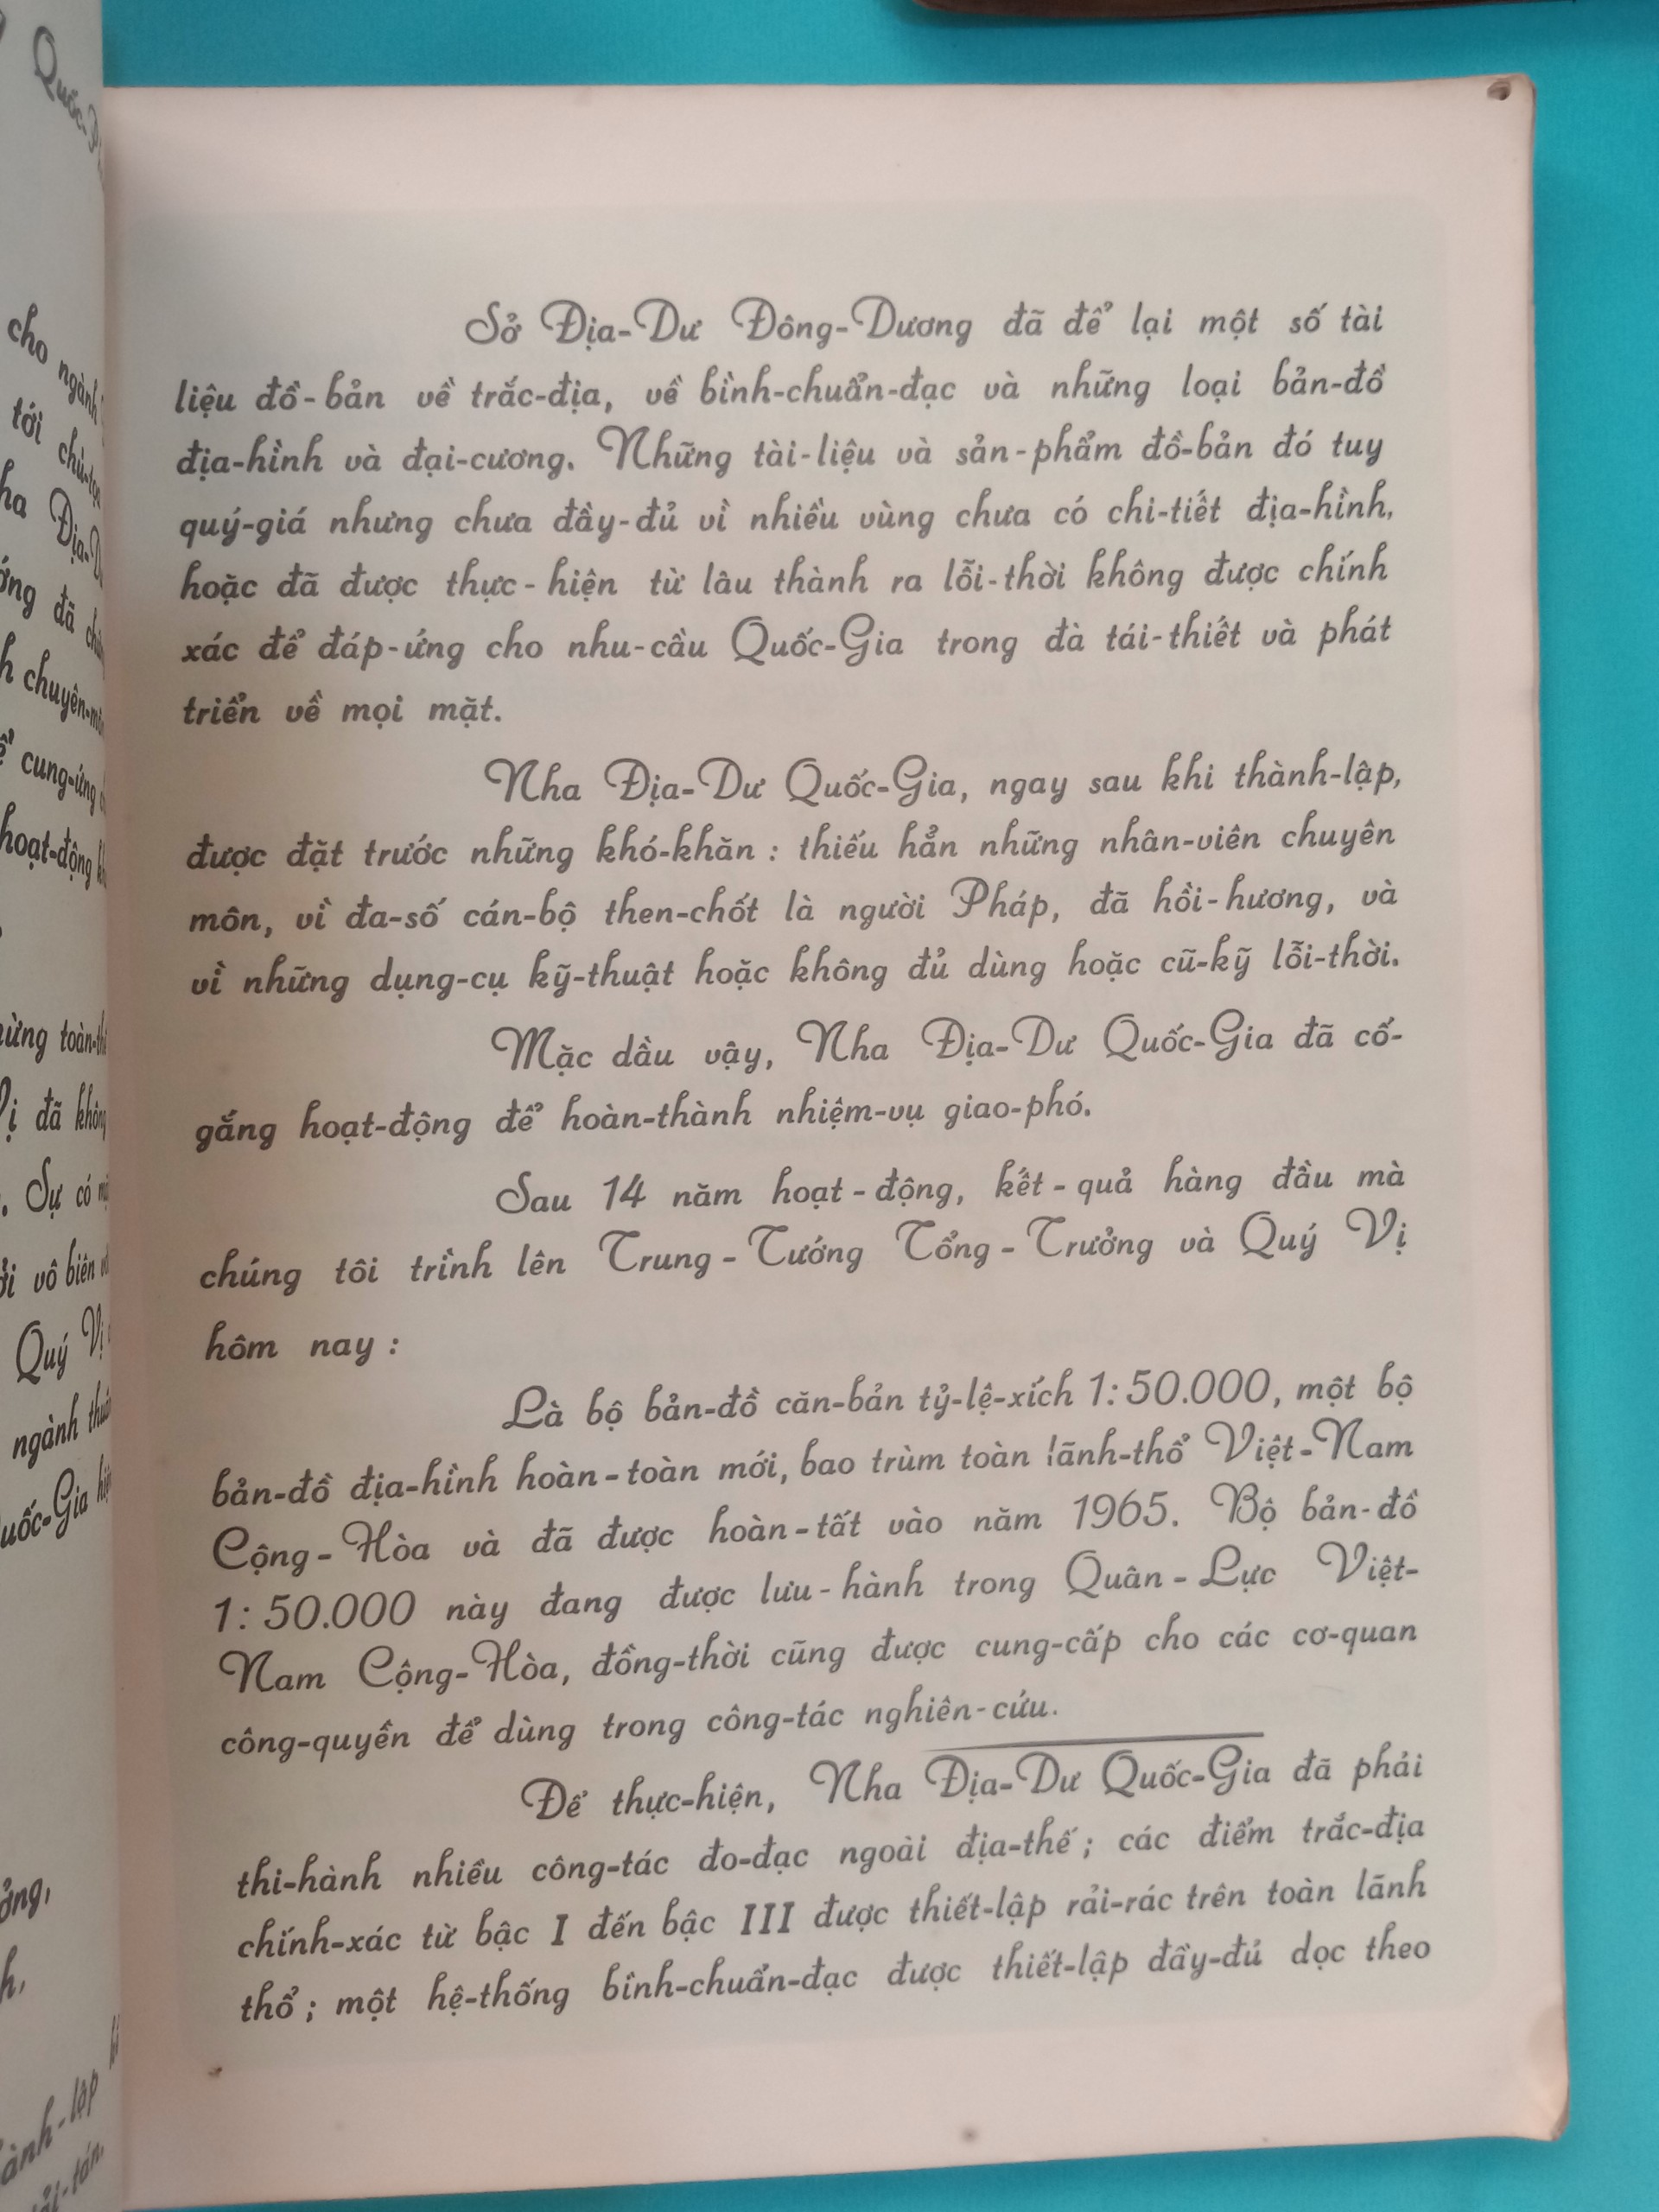 Sở Địa-Dư Đông-Dương đã để lại một số tài
liệu đồ-bản về trắc-địa, về bình-chuẩn-đạc và những loại bản-đồ
địa-hình và đại-cương. Những tài-liệu và sản-phẩm đồ-bản đó tuy
quý-giá nhưng chưa đầy-đủ vì nhiều vùng chưa có chi-tiết địa-hình,
hoặc đã được thực-hiện từ lâu thành ra lỗi-thời không được chính
xác để đáp-ứng cho nhu-cầu Quốc-Gia trong đà tái-thiết và phát
triển về mọi mặt.
Nha Địa-Dư Quốc-Gia, ngay sau khi thành-lập,
được đặt trước những khó-khăn : thiếu hẳn những nhân-viên chuyên
môn, vì đa-số cán-bộ then-chốt là người Pháp, đã hồi-hương, và
vì những dụng-cụ kỹ-thuật hoặc không đủ dùng hoặc cũ-kỹ lỗi-thời.
Mặc dầu vậy, Nha Địa-Dư Quốc-Gia đã cố-
gắng hoạt-động để hoàn-thành nhiệm-vụ giao-phó.
Sau 14 năm hoạt-động, kết-quả hàng đầu mà
chúng tôi trình lên Trung-Tướng Tổng-Trưởng và Quý Vị
hôm nay :
Là bộ bản-đồ căn-bản tỷ-lệ-xích 1:50.000, một bộ
bản-đồ địa-hình hoàn-toàn mới, bao trùm toàn lãnh-thổ Việt-Nam
Cộng-Hòa và đã được hoàn-tất vào năm 1965. Bộ bản-đồ
1:50.000 này đang được lưu-hành trong Quân-Lực Việt-
Nam Cộng-Hòa, đồng-thời cũng được cung-cấp cho các cơ-quan
công-quyền để dùng trong công-tác nghiên-cứu.
Để thực-hiện, Nha Địa-Dư Quốc-Gia đã phải
thi-hành nhiều công-tác đo-đạc ngoài địa-thế ; các điểm trắc-địa
chính-xác từ bậc I đến bậc III được thiết-lập rải-rác trên toàn lãnh
thổ ; một hệ-thống bình-chuẩn-đạc được thiết-lập đầy-đủ dọc theo